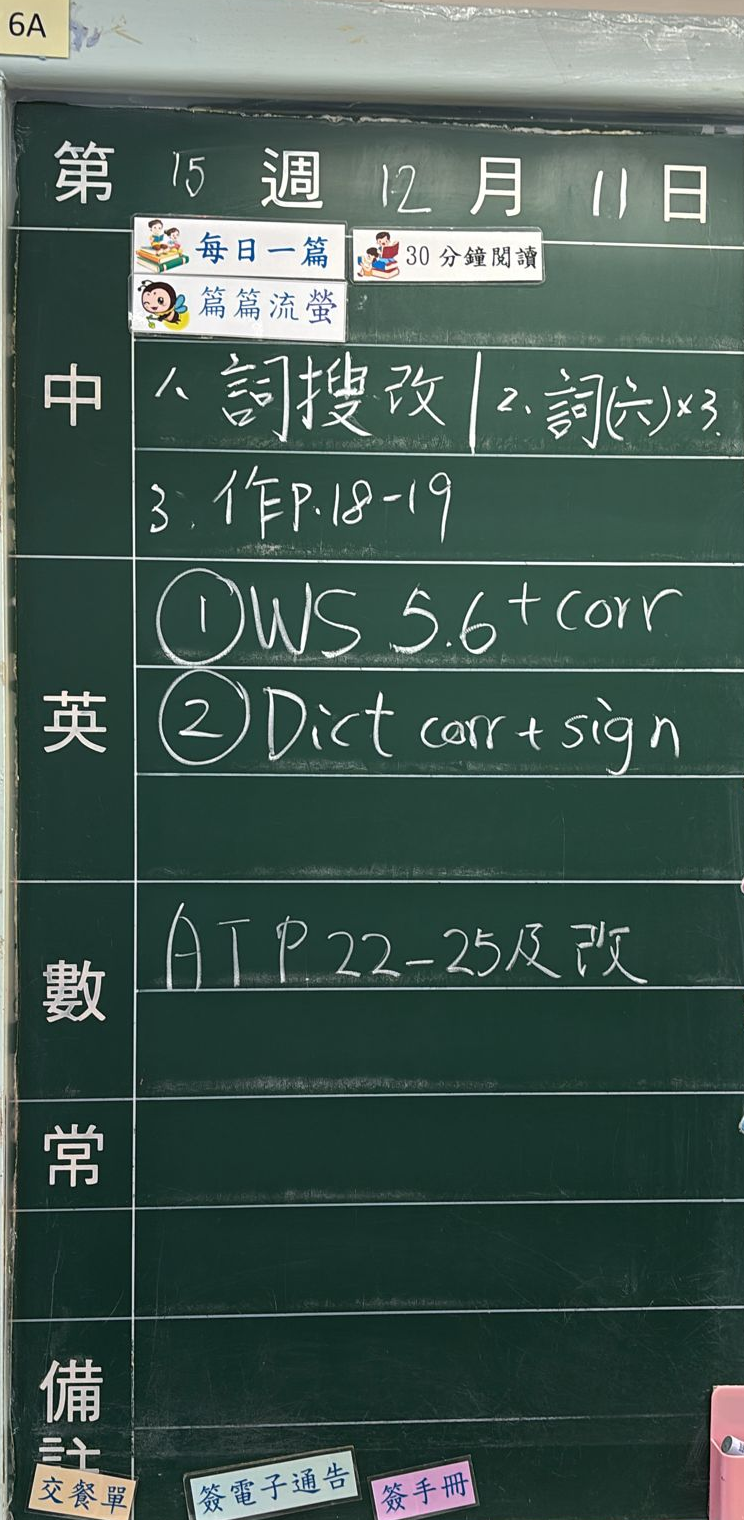 6A
第 15 週 12 月 11 日
每日一篇 30 分鐘閱讀
篇篇流螢
中
1、詞搜改 | 2、詞(六)×3.
3、作P.18-19
英
① WS 5.6 + corr
② Dict corr + sign
數
AT P.22-25及改
常
備註
交餐單 簽電子通告 簽手冊